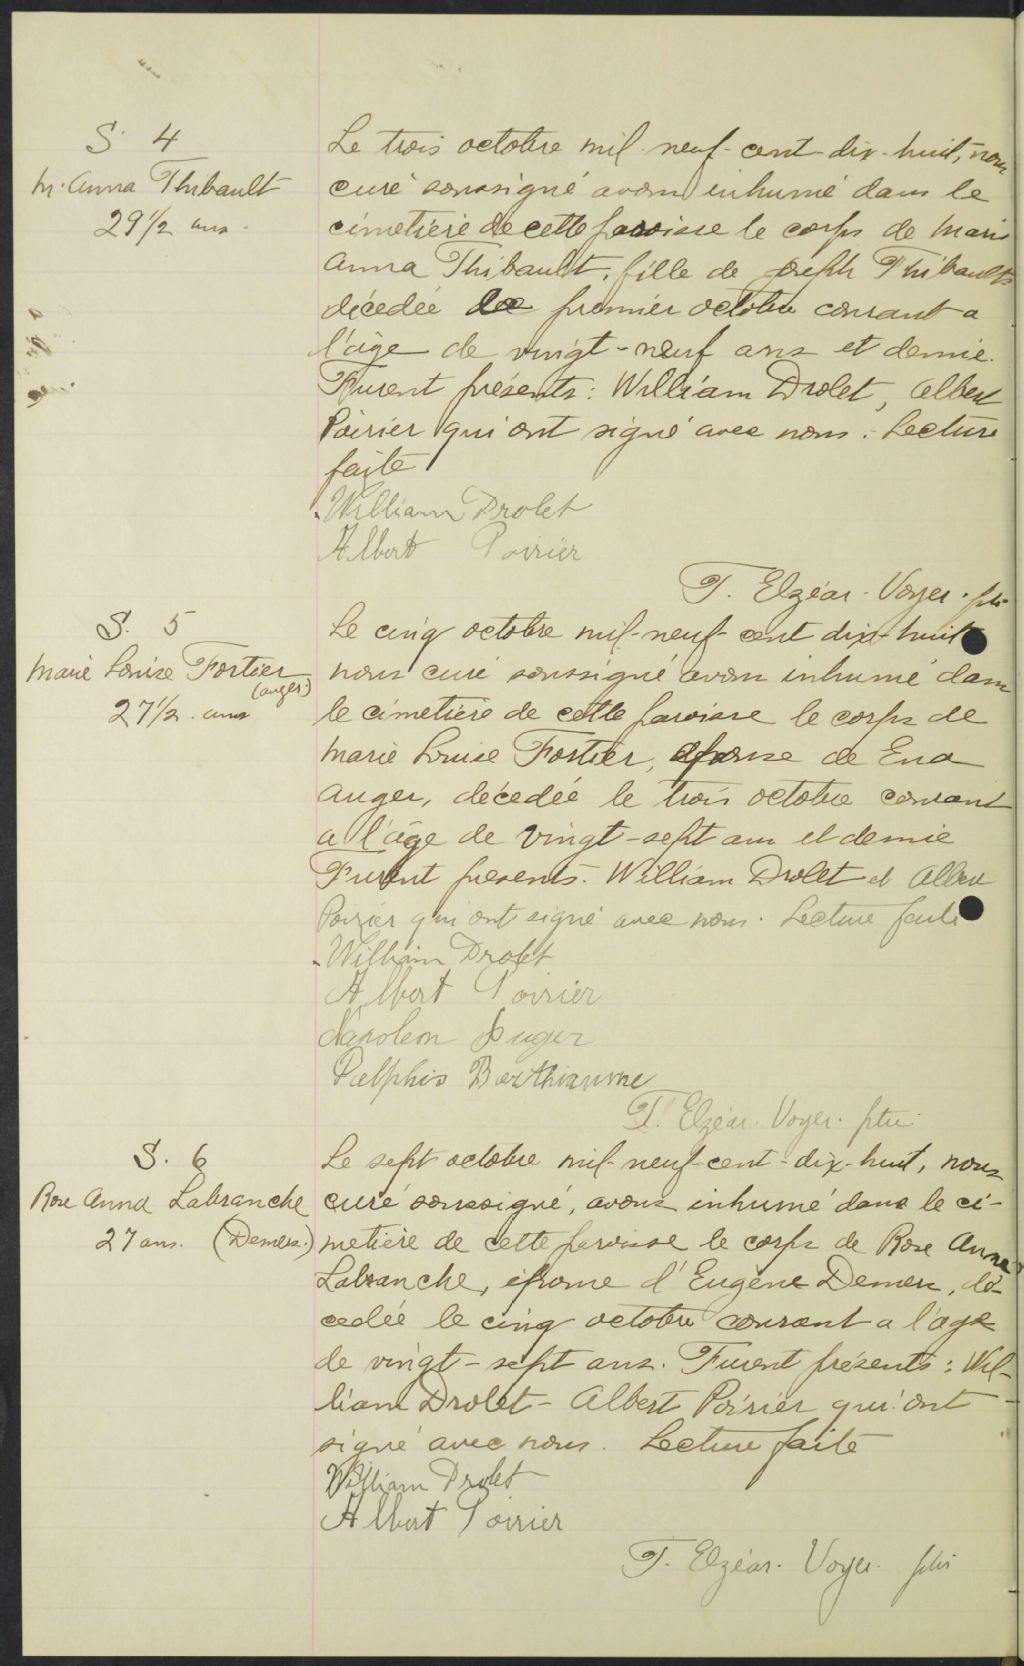 S. 4
M. Anna Thibault
29 1/2 ans.
Le trois octobre mil neuf-cent-dix-huit, nous
curé soussigné avons inhumé dans le
cimetière de cette paroisse le corps de Marie
Anna Thibault, fille de Joseph Thibault
décédée le premier octobre courant a
l'âge de vingt-neuf ans et demie.
Furent présents: William Drolet, Albert
Poirier qui ont signé avec nous. Lecture
faite
William Drolet
Albert Poirier
T. Elzéar. Voyer. ptr
S. 5
Marie Louise Fortier
(auger)
27 1/2 ans
Le cinq octobre mil-neuf-cent dix-huit
nous curé soussigné avons inhumé dans
le cimetière de cette paroisse le corps de
Marie Louise Fortier, épouse de
Auger, décédée le trois octobre courant
a l'âge de vingt-sept ans et demie
Furent presents. William Drolet et Albert
Poirier qui ont signé avec nous. Lecture faite
William Drolet
Albert Poirier
Napoleon Auger
Barthiaume
T. Elzéar. Voyer. ptr
S. 6
Rose Anna Labranche
27 ans. (Demers.)
Le sept octobre mil-neuf-cent-dix-huit, nous
curé soussigné, avons inhumé dans le ci-
metière de cette paroisse le corps de Rose Anna
Labranche, épouse d'Eugène Demers, dé-
cedée le cinq octobre courant a l'age
de vingt-sept ans. Furent présents: Wil-
liam Drolet - Albert Poirier qui ont
signé avec nous. Lecture faite
William Drolet
Albert Poirier
T. Elzéar. Voyer. ptr